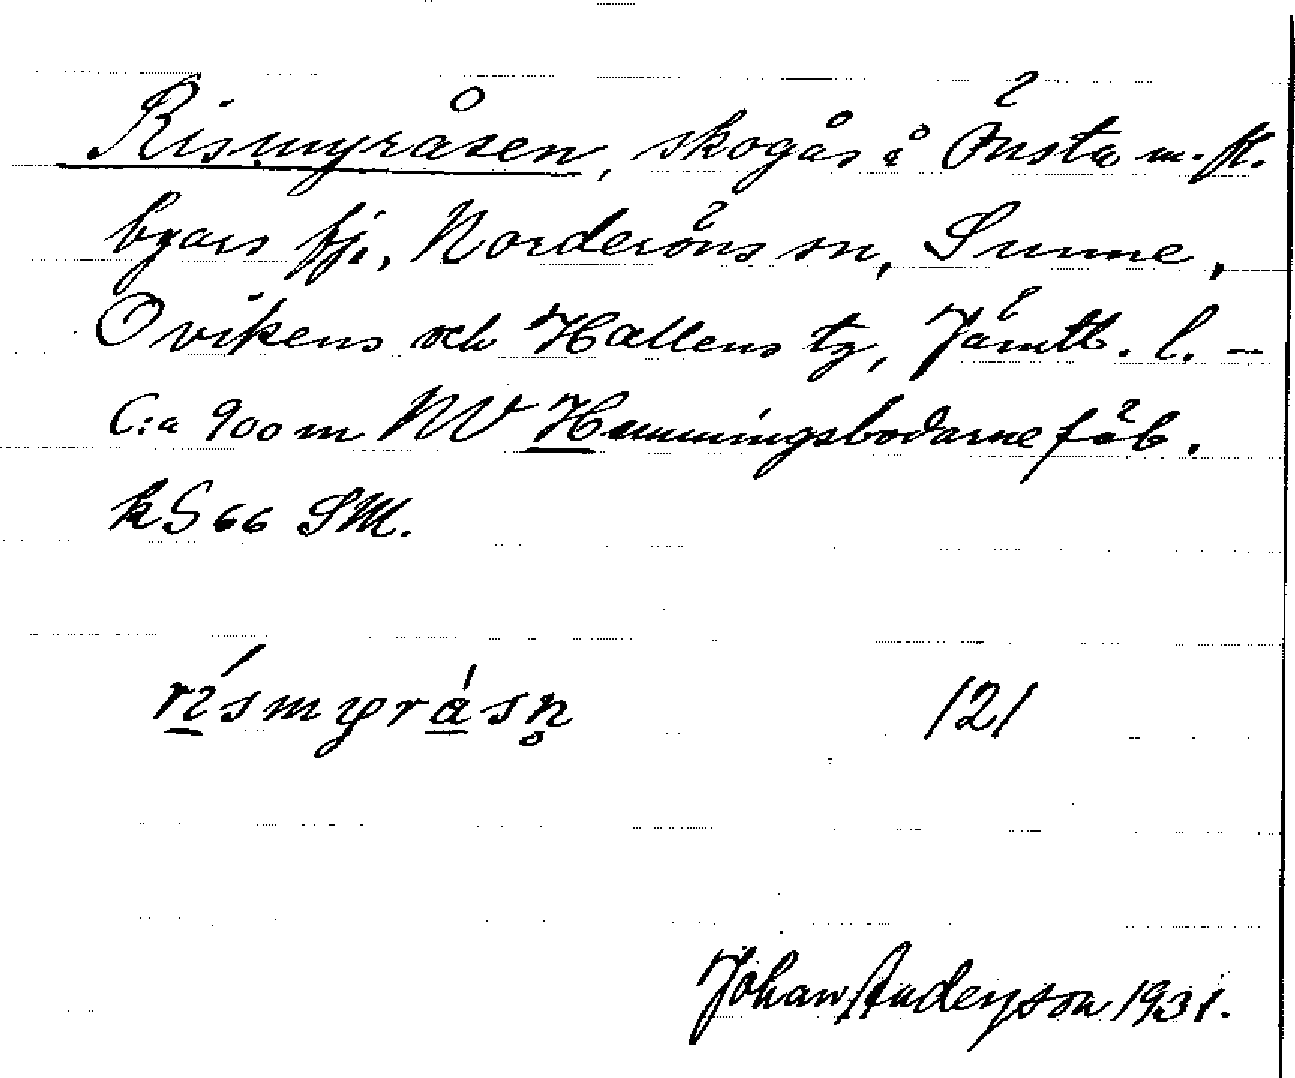 Rismyråsen, skogås å Önsta m. fl.
byars fj., Norderöns sn, Sunne,
Ovikens och Hallens tg, Jämtl. l. –
C:a 900 m NV Hemmingsbodarne fäb.
k S 66 SM.
rísmyrásn̥ 121
Johan Anderson 1931.